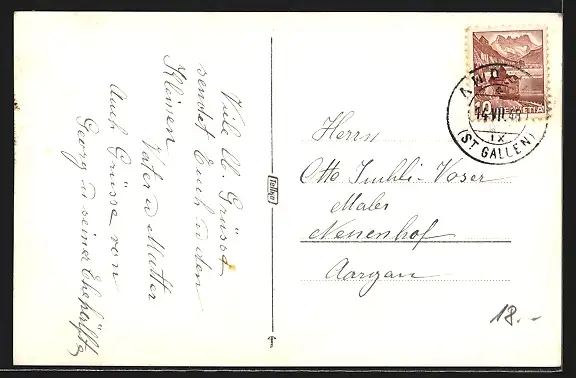 Viele lb. Grüsse
sendet Euch u den
Kleinen
Vater u Mutter
Auch Grüsse von
Georg u seiner Ehehälfte
Tellko
HELVETIA
10
14.VII.43
IX
(ST. GALLEN)
Herrn
Otto -Voser
Maler
Neuenhof
Aargau
18.-